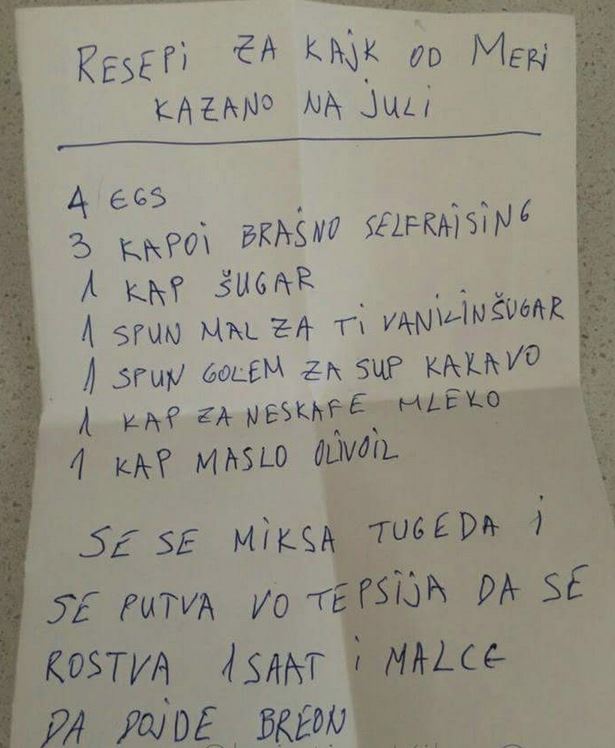 RESEPi ZA KAJK OD MERi
KAZANO NA JULi
4 EGS
3 KAPOI BRAŠNO SELFRAISING
1 KAP ŠUGAR
1 SPUN MAL ZA Ti VANILIN ŠUGAR
1 SPUN GOLEM ZA SUP KAKAVO
1 KAP ZA NESKAFE MLEKO
1 KAP MASLO OLIVOIL
SE SE MIKSA TUGEDA i
SE PUTVA VO TEPSIJA DA SE
ROSTVA 1 SAAT i MALCE
DA DOJDE BREON